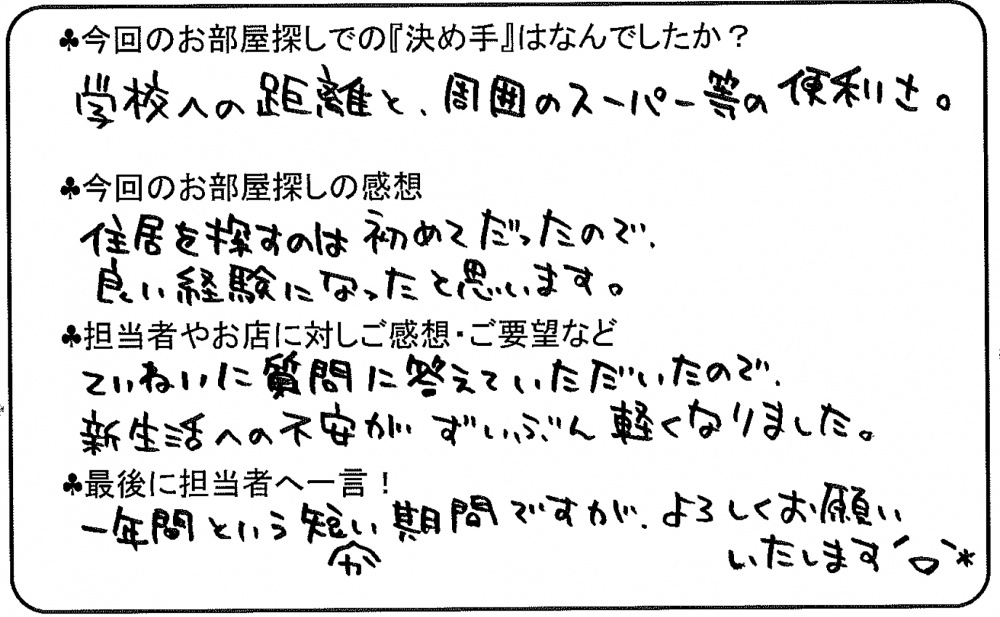 ♣今回のお部屋探しでの『決め手』はなんでしたか？
学校への距離と、周囲のスーパー等の便利さ。
♣今回のお部屋探しの感想
住居を探すのは初めてだったので、
良い経験になったと思います。
♣担当者やお店に対しご感想・ご要望など
ていねいに質問に答えていただいたので、
新生活への不安がずいぶん軽くなりました。
♣最後に担当者へ一言！
一年間という短い期間ですが、よろしくお願い
か
いたします´▽`*